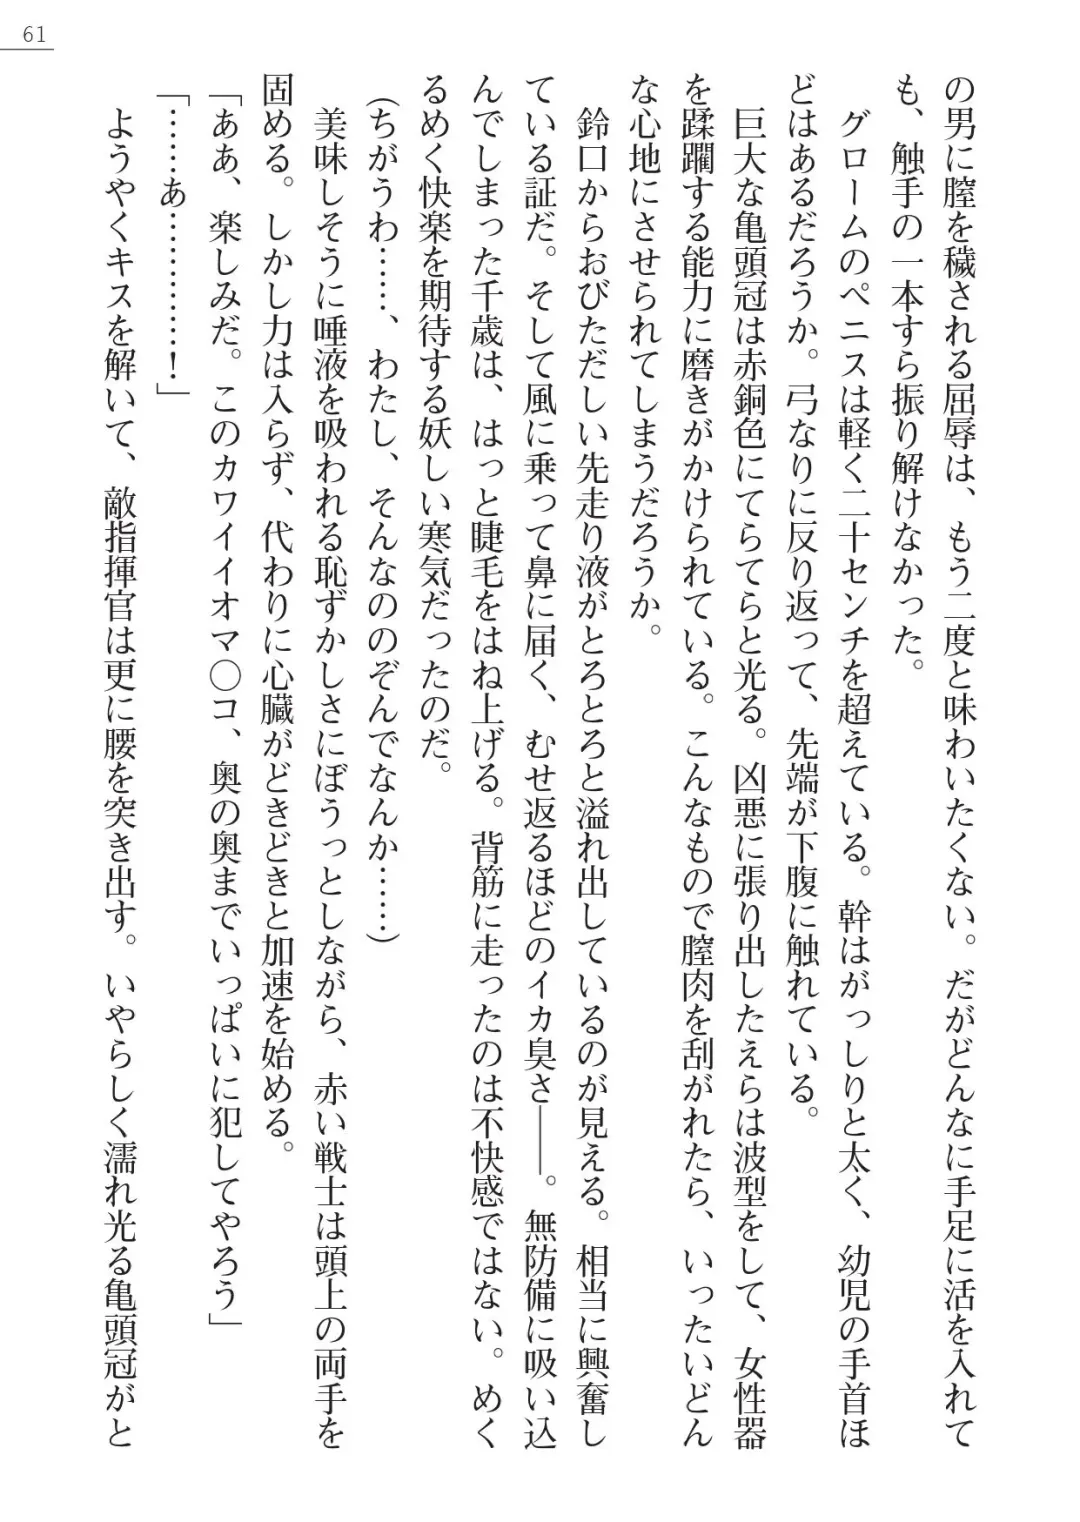 61
の男に膣を穢される屈辱は、もう二度と味わいたくない。だがどんなに手足に活を入れて
も、触手の一本すら振り解けなかった。
グロームのペニスは軽く二十センチを超えている。幹はがっしりと太く、幼児の手首ほ
どはあるだろうか。弓なりに反り返って、先端が下腹に触れている。
巨大な亀頭冠は赤銅色にてらてらと光る。凶悪に張り出したえらは波型をして、女性器
を蹂躙する能力に磨きがかけられている。こんなもので膣肉を刮がれたら、いったいどん
な心地にさせられてしまうだろうか。
鈴口からおびただしい先走り液がとろとろと溢れ出しているのが見える。相当に興奮し
ている証だ。そして風に乗って鼻に届く、むせ返るほどのイカ臭さ――。無防備に吸い込
んでしまった千歳は、はっと睫毛をはね上げる。背筋に走ったのは不快感ではない。めく
るめく快楽を期待する妖しい寒気だったのだ。
(ちがうわ……、わたし、そんなののぞんでなんか……)
美味しそうに唾液を吸われる恥ずかしさにぼうっとしながら、赤い戦士は頭上の両手を
固める。しかし力は入らず、代わりに心臓がどきどきと加速を始める。
「ああ、楽しみだ。このカワイイオマ〇コ、奥の奥までいっぱいに犯してやろう」
「……あ…………！」
ようやくキスを解いて、敵指揮官は更に腰を突き出す。いやらしく濡れ光る亀頭冠がと